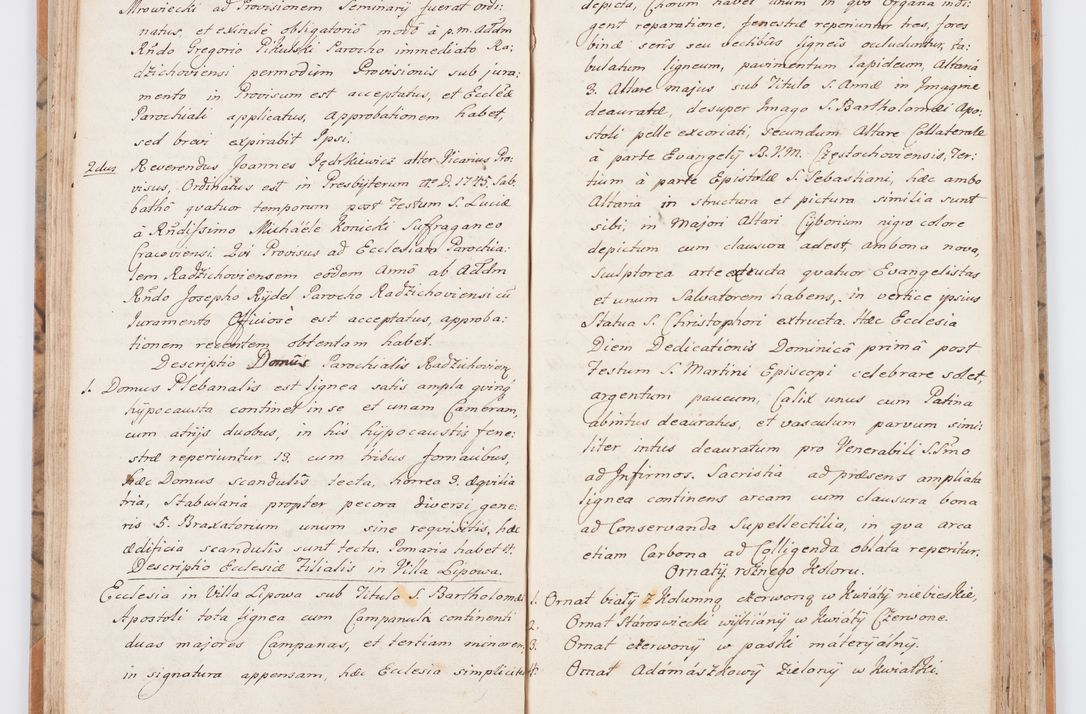 Mrowiecki ad Provisionem Seminarÿ fuerat ordi:
natus, et exinde obligatorio modo à p.m. Addm
Rndo Gregorio Pikulski Parocho immediato Ra:
dzichoviensi permodum Provisionis sub jura:
mento in Provisum est acceptatus, et Ecclæ
Parochiali applicatus, Approbationem habet,
sed brevi expirabit Ipsi.
2dus Reverendus Joannes Jędrkiewicz alter Vicarius Pro:
visus, Ordinatus est in Presbÿterum Ao D. 1745. Sab:
batho qvatuor temporum post Festum S. Luciæ
à Rndissmo Michaële Konicki Suffraganeo
Cracoviensi. Qvi Provisus ad Ecclesiam Parochia:
lem Radzichoviensem eodem Anno ab Addm
Rndo Josepho Rÿdel Parocho Radzichoviensi cū
Juramento Officiose est acceptatus, approba:
tionem recentem obtentam habet.
Descriptio Domûs Parochialis Radzichovien
1. Domus Plebanalis est lignea satis ampla qvinq
hÿpocausta continet in se et unam Cameram,
cum atrijs duobus, in his hÿpocaustis fene:
stræ reperiuntur 13. cum tribus fornacibus,
Hæc Domus scandulis tecta, horrea 3. æqvilia
tria, Stabularia propter pecora diversi gene:
ris 5. Braxatorium unum sine reqvisitis, hæc
ædificia scandulis sunt tecta. Pomaria habet 4.
Descriptio Ecclesiæ Filialis in Villa Lipowa.
Ecclesia in Villa Lipowa sub Titulo S. Bartholomæi
Apostoli tota lignea cum Campanula continenti
duas majores Campanas, et tertiam minorem
in signatura appensam, hæc Ecclesia simpliciter
depicta, Chorum habet unum in qvo Organa indi:
gent reparatione, fenestræ reperiuntur tres, fores
binæ seris seu vectibus ligneis occluduntur, ta:
bulatum ligneum, pavimentum lapideum, Altaria
3. Altare majus sub Titulo S. Annæ in Imagine
deauratæ, desuper Imago S. Bartholomæi Apo:
stoli pelle excoriati, secundum Altare Collaterale
à parte Evangelÿ B.V.M. Częstochoviensis, Ter:
tium à parte Epistolæ S. Sebastiani, hæc ambo
Altaria in structura et pictura similia sunt
sibi, in Majori Altari Cÿborium nigro colore
depictum cum clausura adest, ambona nova,
sculptorea arte extructa qvatuor Evangelistas
et unum Salvatorem habens, in vertice ipsius
Statua S. Christophori extructa. Hæc Ecclesia
Diem Dedicationis Dominicâ primâ post
Festum S. Martini Episcopi celebrare solet,
argentum paucum, Calix unus cum Patina
abintus deauratus, et vasculum parvum simi:
liter intus deauratum pro Venerabili S.Smo
ad Infirmos. Sacristia ad præsens ampliata
lignea continens arcam cum clausura bona
ad Conservanda Supellectilia, in qva arca
etiam Carbona ad Colligenda oblata reperitur.
Ornatÿ rożnego Koloru.
1. Ornat białÿ z kolumną czerwoną w kwiatÿ niebieskie,
2. Ornat Staroswiecki wÿbiianÿ w kwiatÿ Czerwone.
3. Ornat czerwonÿ w paski materÿalnÿ.
4. Ornat Adamaszkowÿ zielonÿ w kwiatki.